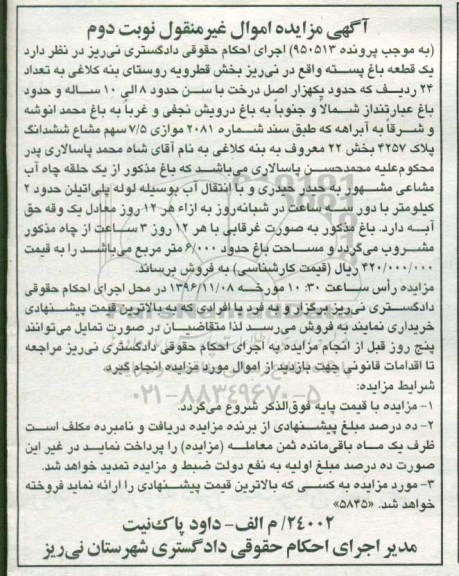 آگهی مزایده اموال غیرمنقول نوبت دوم
(به موجب پرونده ۹۵۰۵۱۳) اجرای احکام حقوقی دادگستری نی‌ریز در نظر دارد
یک قطعه باغ پسته واقع در نی‌ریز بخش قطرویه روستای بنه کلاغی به تعداد
۲۴ ردیف که حدود یکهزار اصل درخت با سن حدود ۸ الی ۱۰ ساله و حدود
باغ عبارتنداز شمالاً و جنوباً به باغ درویش نجفی و غرباً به باغ محمد انوشه
و شرقاً به آبراهه که طبق سند شماره ۲۰۸۱ موازی ۷/۵ سهم مشاع ششدانگ
پلاک ۴۲۵۷ بخش ۲۲ معروف به بنه کلاغی به نام آقای شاه محمد پاسالاری پدر
محکوم‌علیه محمدحسن پاسالاری می‌باشد که باغ مذکور از یک حلقه چاه آب
مشاعی مشهور به حیدر حیدری و با انتقال آب بوسیله لوله پلی‌اتیلن حدود ۲
کیلومتر با دور سه ساعت در شبانه‌روز به ازاء هر ۱۲ روز معادل یک وقه حق
آبه دارد. باغ مذکور به صورت غرقابی با هر ۱۲ روز ۳ ساعت از چاه مذکور
مشروب می‌گردد و مساحت باغ حدود ۶/۰۰۰ متر مربع می‌باشد را به قیمت
۴۲۰/۰۰۰/۰۰۰ ریال (قیمت کارشناسی) به فروش برساند.
مزایده رأس ساعت ۱۰:۳۰ مورخه ۱۳۹۶/۱۱/۰۸ در محل اجرای احکام حقوقی
دادگستری نی‌ریز برگزار و به فرد یا افرادی که به بالاترین قیمت پیشنهادی
خریداری نمایند به فروش می‌رسد لذا متقاضیان در صورت تمایل می‌توانند
پنج روز قبل از انجام مزایده به اجرای احکام حقوقی دادگستری نی‌ریز مراجعه
تا اقدامات قانونی جهت بازدید از اموال مورد مزایده انجام گیرد
شرایط مزایده:
۰۲۱-۸۸۳۴۹۶۷۰-۵
۱- مزایده با قیمت پایه فوق‌الذکر شروع می‌گردد.
۲- ده درصد مبلغ پیشنهادی از برنده مزایده دریافت و نامبرده مکلف است
ظرف یک ماه باقی‌مانده ثمن معامله (مزایده) را پرداخت نماید در غیر این
صورت ده درصد مبلغ اولیه به نفع دولت ضبط و مزایده تمدید خواهد شد.
۳- مورد مزایده به کسی که بالاترین قیمت پیشنهادی را ارائه نماید فروخته
خواهد شد. «۵۸۳۵»
۲۴۰۰۲/ م الف- داود پاک‌نیت
مدیر اجرای احکام حقوقی دادگستری شهرستان نی‌ریز